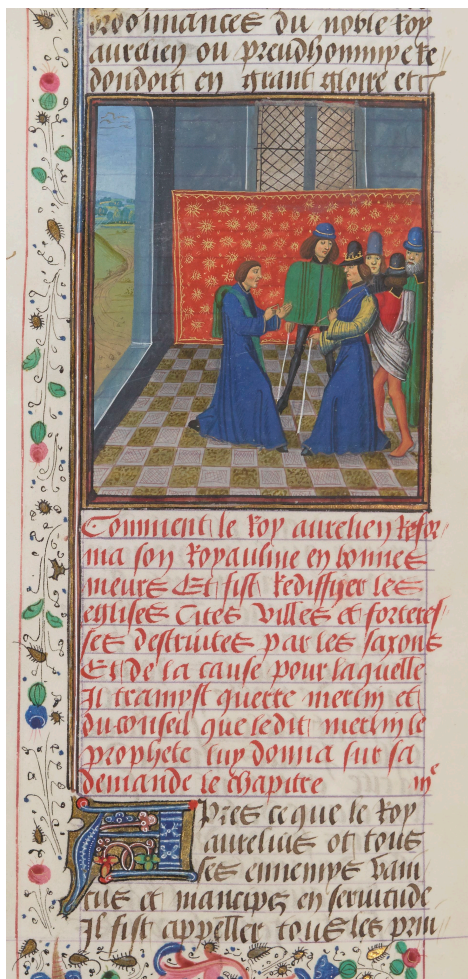 ordonnances du noble Roy
aurelien ou preudhommye Re
dondoit en grant gloire etc
Comment le Roy aurelien Refor
ma son Royaulme en bonnes
meurs Et fist Rediffyer les
eglises Cites villes et forteres
ses destruites par les saxons
Et de la cause pour laquelle
Il tramyst querre merlin et
du conseil que le dit merlin le
prophete luy donna sur sa
demande le chapitre iii e
Apres ce que le Roy
aurelius ot tous
ses ennemys vain
cus et mancipez en servitude
Il fist appeller tous les prin